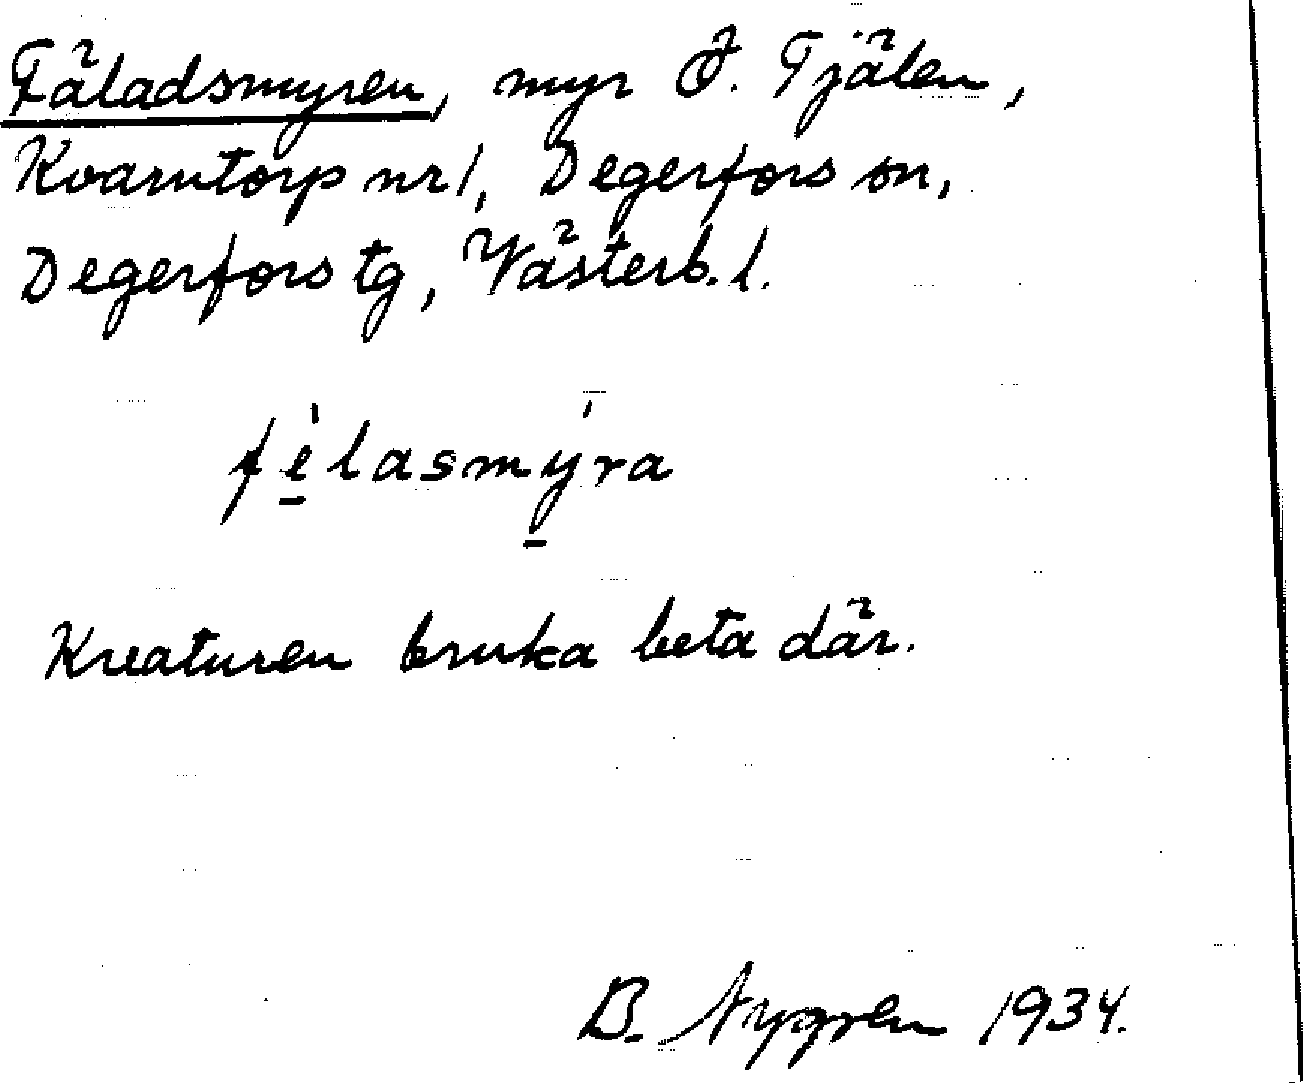 Fäladsmyren, myr Ö. Tjälen,
Kvarntorp nr 1, Degerfors sn,
Degerfors tg, Västerb. l.
fèlasmýra
Kreaturen bruka beta där.
B. Nygren 1934.